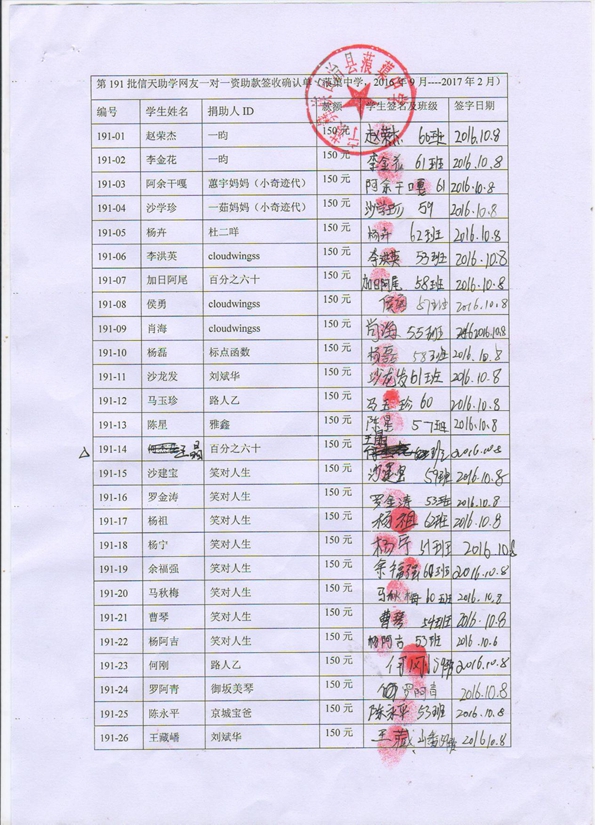 第 191 批信天助学网友一对一资助款签收确认单（蒗蕖中学，2016 年 9 月----2017 年 2 月）
编号 学生姓名 捐助人 ID 款额 学生签名及班级 签字日期
191-01 赵荣杰 一昀 150 元 赵荣杰 60班 2016.10.8
191-02 李金花 一昀 150 元 李金花 61班 2016.10.8
191-03 阿余干嘎 蕙宇妈妈（小奇迹代） 150 元 阿余干嘎 61 2016.10.8
191-04 沙学珍 一茹妈妈（小奇迹代） 150 元 沙学珍 59 2016.10.8
191-05 杨卉 杜二咩 150 元 杨卉 62班 2016.10.8
191-06 李洪英 cloudwingss 150 元 李洪英 53班 2016.10.8
191-07 加日阿尾 百分之六十 150 元 加日阿尾 58班 2016.10.8
191-08 侯勇 cloudwingss 150 元 侯勇 57班 2016.10.8
191-09 肖海 cloudwingss 150 元 肖海 55班 2016.10.8
191-10 杨磊 标点函数 150 元 杨磊 58班 2016.10.8
191-11 沙龙发 刘斌华 150 元 沙龙发 61班 2016.10.8
191-12 马玉珍 路人乙 150 元 马玉珍 60 2016.10.8
191-13 陈星 雅鑫 150 元 陈星 57班 2016.10.8
△ 191-14 王 百分之六十 150 元 王 2016.10.8
191-15 沙建宝 笑对人生 150 元 沙建宝 59班 2016.10.8
191-16 罗金涛 笑对人生 150 元 罗金涛 53班 2016.10.8
191-17 杨祖 笑对人生 150 元 杨祖 62班 2016.10.8
191-18 杨宁 笑对人生 150 元 杨宁 51班 2016.10.8
191-19 余福强 笑对人生 150 元 余福强 60班 2016.10.8
191-20 马秋梅 笑对人生 150 元 马秋梅 60班 2016.10.8
191-21 曹琴 笑对人生 150 元 曹琴 54班 2016.10.8
191-22 杨阿吉 笑对人生 150 元 杨阿吉 53班 2016.10.6
191-23 何刚 路人乙 150 元 何刚 59班 2016.10.8
191-24 罗阿青 御坂美琴 150 元 罗阿青 2016.10.8
191-25 陈永平 京城宝爸 150 元 陈永平 53班 2016.10.8
191-26 王藏嶓 刘斌华 150 元 王藏 2016.10.8